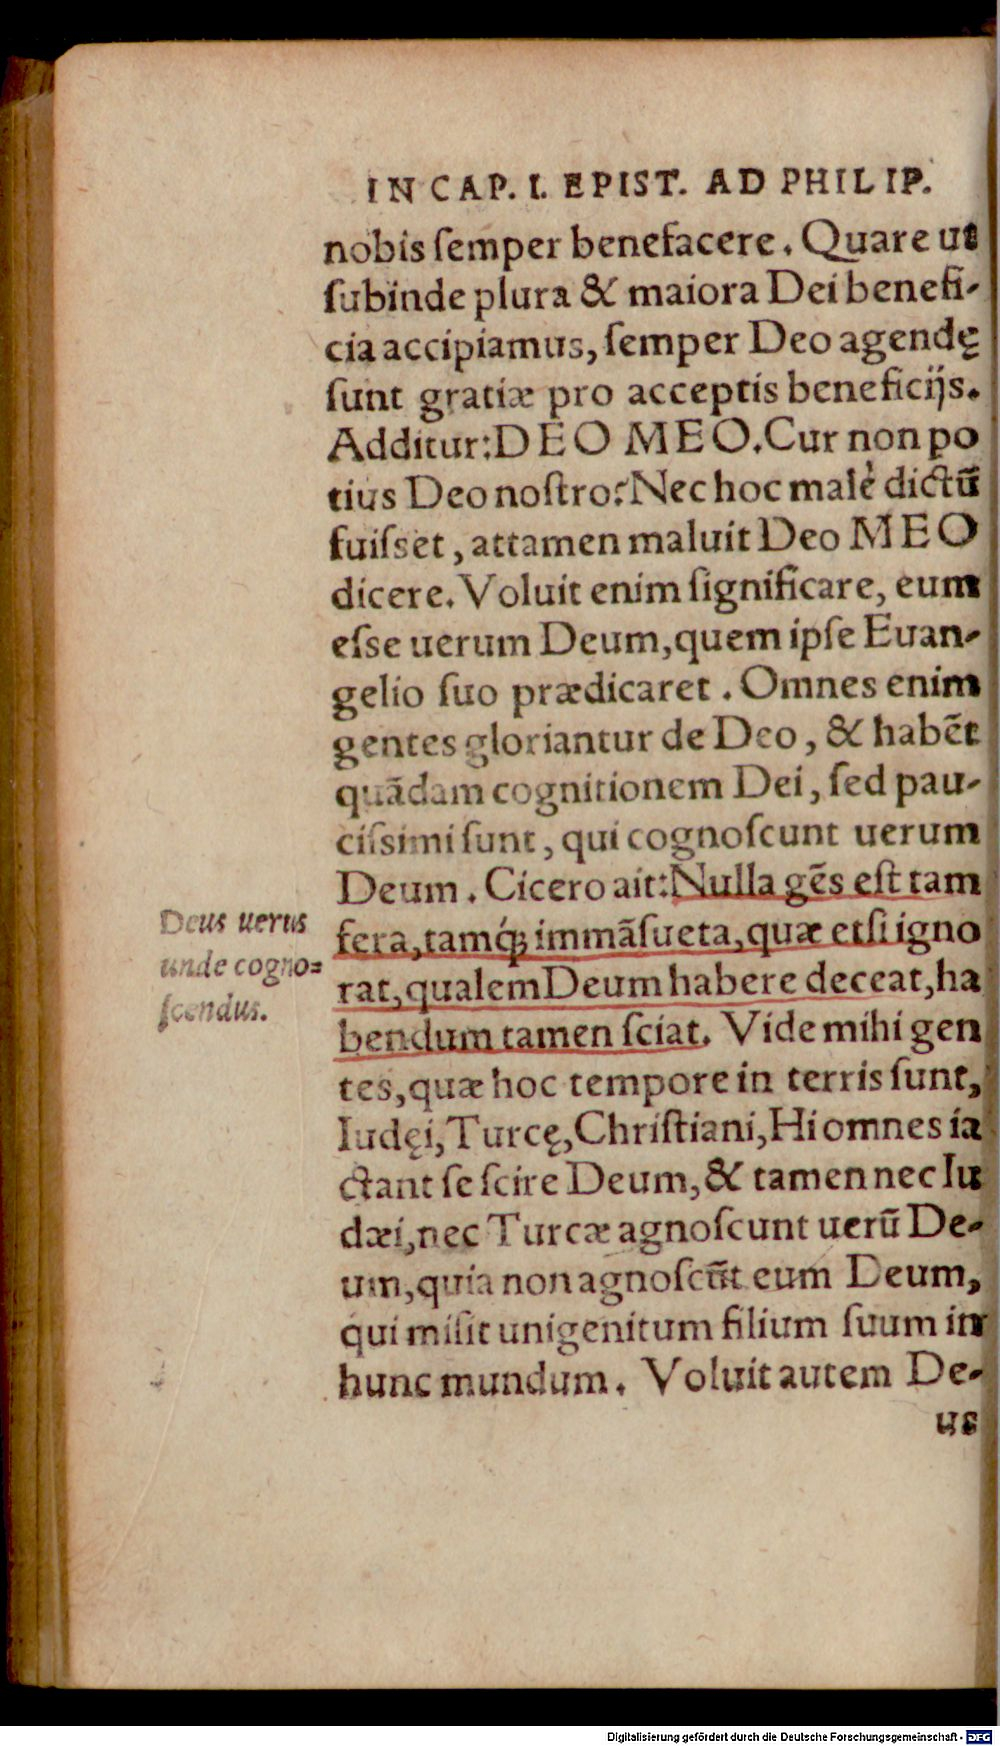 IN CAP. I. EPIST. AD PHILIP.
nobis ſemper benefacere. Quare ut
ſubinde plura & maiora Dei benefi-
cia accipiamus, ſemper Deo agendę
ſunt gratiæ pro acceptis beneficijs.
Additur: DEO MEO. Cur non po
tius Deo noſtro? Nec hoc malè dictũ
fuiſset, attamen maluit Deo MEO
dicere. Voluit enim ſignificare, eum
eſse uerum Deum, quem ipſe Euan-
gelio ſuo prædicaret. Omnes enim
gentes gloriantur de Deo, & habẽt
quãdam cognitionem Dei, ſed pau-
ciſsimi ſunt, qui cognoſcunt uerum
Deum. Cicero ait: Nulla gẽs eſt tam
fera, tamꝗ́; immãſueta, quæ etſi igno
rat, qualem Deum habere deceat, ha
bendum tamen ſciat. Vide mihi gen
tes, quæ hoc tempore in terris ſunt,
Iudęi, Turcę, Chriſtiani, Hi omnes ia
ctant ſe ſcire Deum, & tamen nec Iu
dæi, nec Turcæ agnoſcunt uerũ De-
um, quia non agnoſcũt eum Deum,
qui miſit unigenitum filium ſuum in
hunc mundum. Voluit autem De-
us
Deus uerus
unde cogno=
ſcendus.
Digitalisierung gefördert durch die Deutsche Forschungsgemeinschaft - DFG